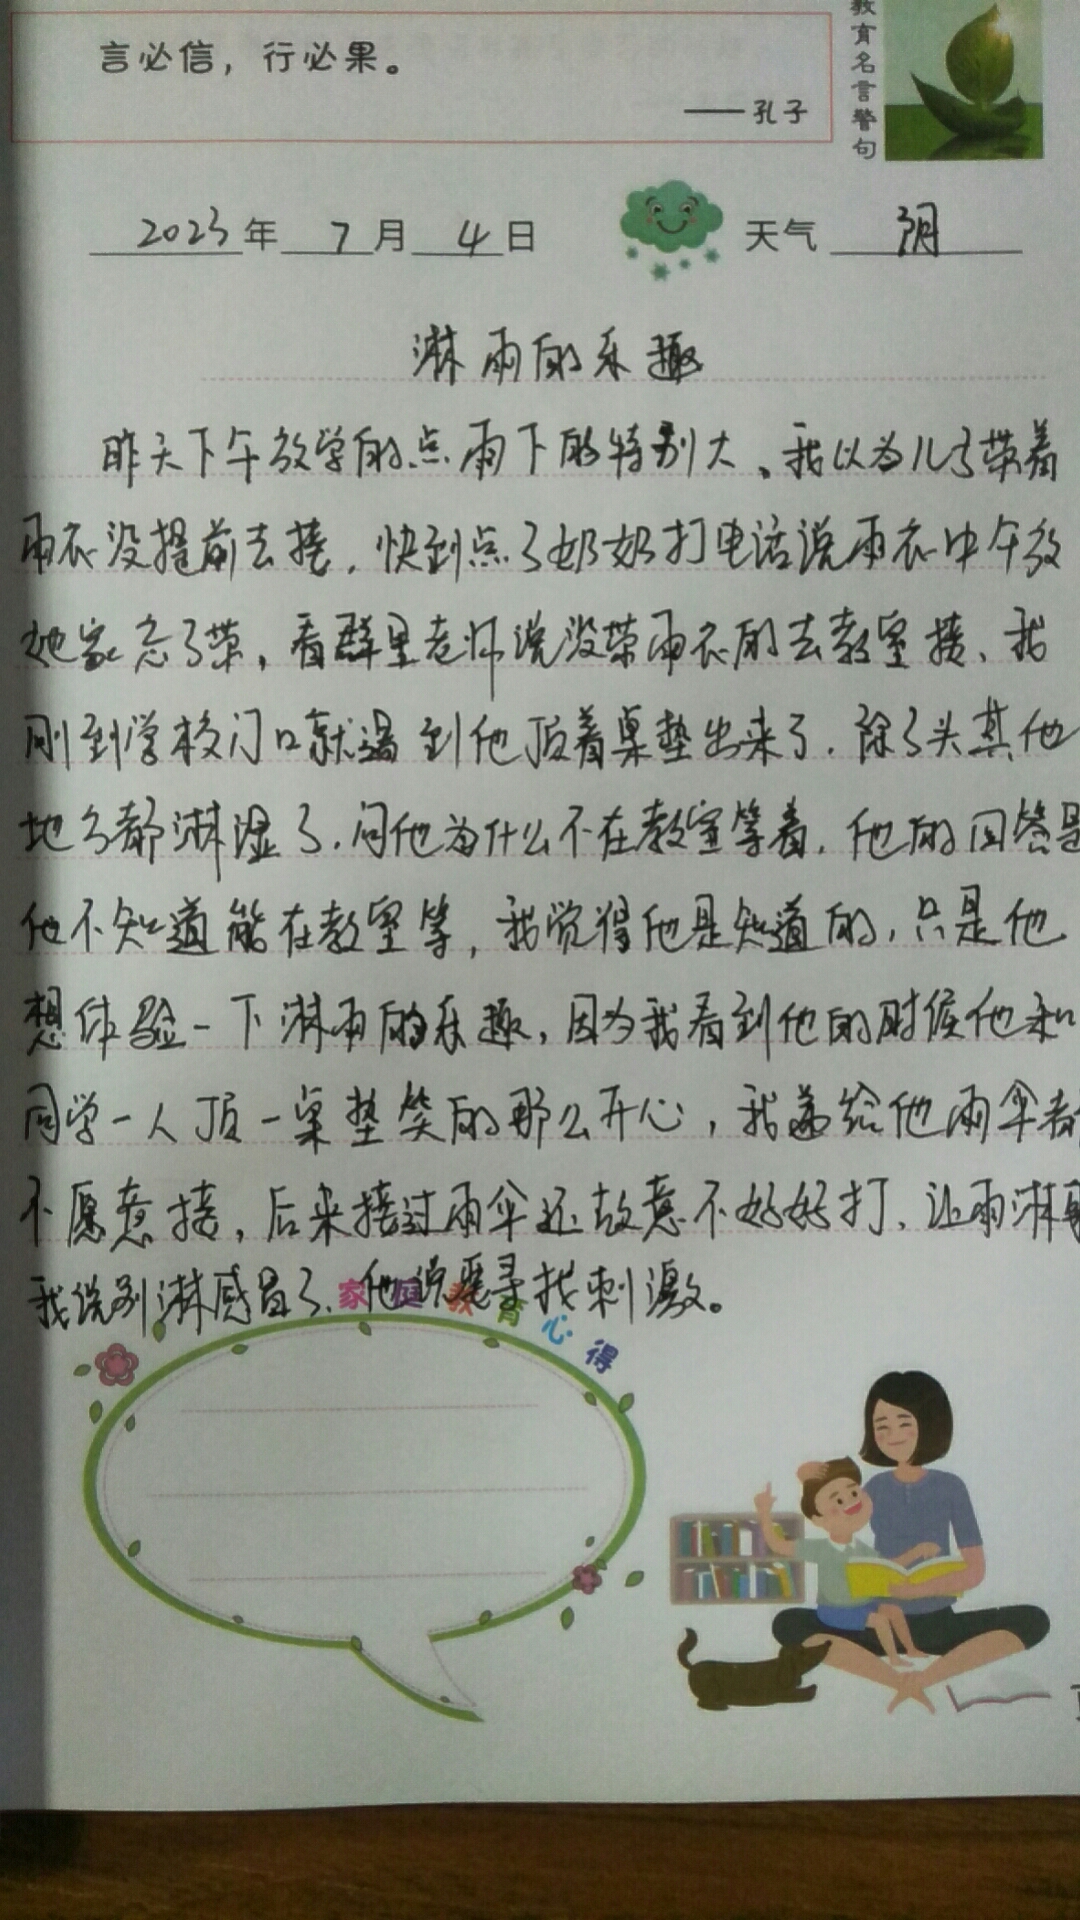 言必信，行必果。
——孔子
教育名言警句
2023年7月4日 天气 阴
淋雨的乐趣
昨天下午放学的点雨下的特别大、我以为儿子带着
雨衣没提前去接，快到点了奶奶打电话说雨衣中午放
她家忘了带，看群里老师说没带雨衣的去教室接、我
刚到学校门口就遇到他顶着桌垫出来了，除了头其他
地方都淋湿了，问他为什么不在教室等着，他的回答是
他不知道能在教室等，我觉得他是知道的，只是他
想体验一下淋雨的乐趣，因为我看到他的时候他和
同学一人顶一桌垫笑的那么开心，我递给他雨伞都
不愿意接，后来接过雨伞还故意不好好打，让雨淋
我说别淋感冒了，他说要寻找刺激。
家庭教育心得